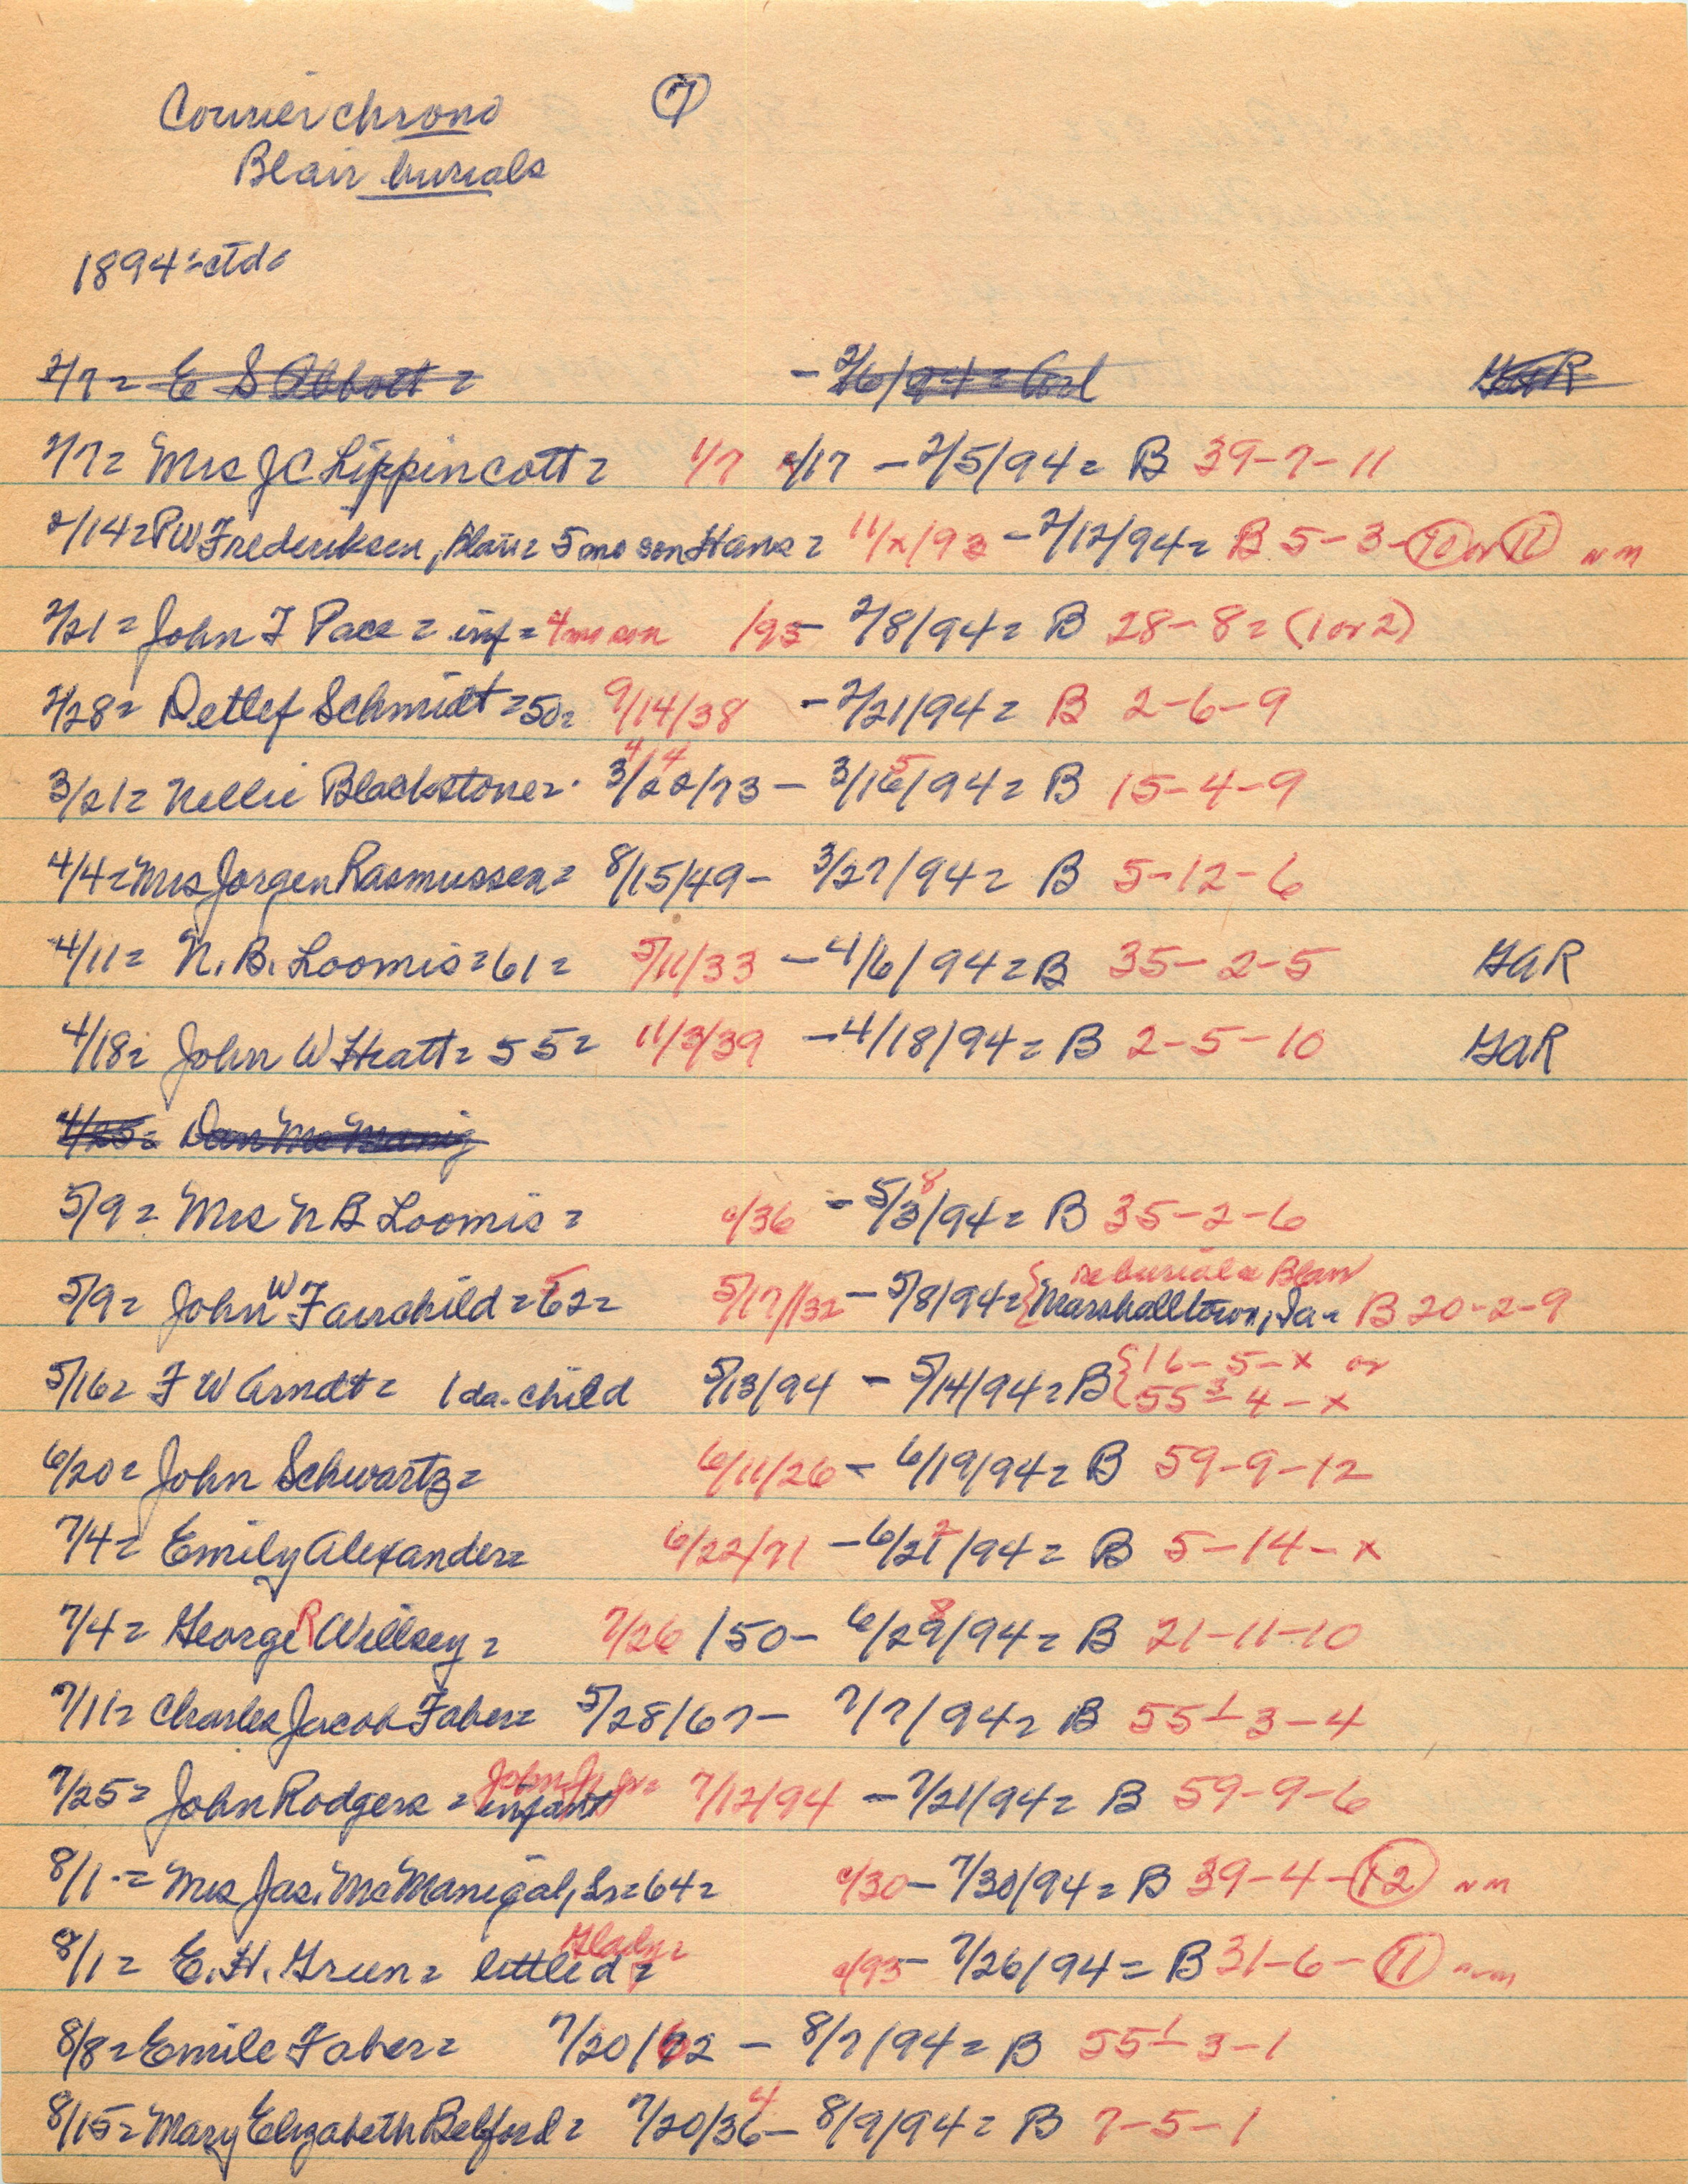 Courier chrono ⑦
Blair burials
1894 = ctd.
2/7 = E S Abbott = - 2/6/94 = Arl GAR
2/7 = Mrs J C Lippincott = 1/7 c/17 - 2/5/94 = B 39-7-11
2/14 = P W Frederiksen, Blair = 5 mo son Hans = 11/2/93 - 2/12/94 = B 5-3-10 or 11 nm
2/21 = John F Pace = inf = 4 mo son /93 - 2/8/94 = B 28-8 = (1 or 2)
2/28 = Detlef Schmidt = 50 = 9/14/38 - 2/21/94 = B 2-6-9
4/ 4 5
3/21 = Nellie Blackstone = 3/22/73 - 3/16/94 = B 15-4-9
4/4 = Mrs Jorgen Rasmussen = 8/15/49 - 3/27/94 = B 5-12-6
4/11 = N. B. Loomis = 61 = 5/11/33 - 4/6/94 = B 35-2-5 GAR
4/18 = John W Hiatt = 55 = 11/3/39 - 4/18/94 = B 2-5-10 GAR
4/25 = Dan McManig
8
5/9 = Mrs N B Loomis = c/36 - 5/3/94 = B 35-2-6
W 5 reburial = Blair
5/9 = John Fairchild = 62 = 5/17/32 - 5/8/94 = Marshalltown, Ia - B 20-2-9
5/16 = F W Arndt = 1 da. child 5/13/94 - 5/14/94 = B {16-5-x or
{55 3-4-x
6/20 = John Schwartz = 6/11/26 - 6/19/94 = B 59-9-12
2
7/4 = Emily Alexander = 6/22/71 - 6/21/94 = B 5-14-x
R 8
7/4 = George Willsey = 7/26/50 - 6/29/94 = B 21-11-10
7/11 = Charles Jacob Faber = 5/28/67 - 7/7/94 = B 55 1-3-4
John J Jr =
7/25 = John Rodgers = infant 7/12/94 - 7/21/94 = B 59-9-6
8/1 = Mrs Jas. McManigal, Sr = 64 = c/30 - 7/30/94 = B 39-4-12 nm
Glady =
8/1 = E. H. Green = little d = c/93 - 7/26/94 = B 31-6-11 nm
8/8 = Emile Faber = 7/20/62 - 8/7/94 = B 55 1-3-1
4
8/15 = Mary Elizabeth Belford = 7/20/36 - 8/9/94 = B 7-5-1